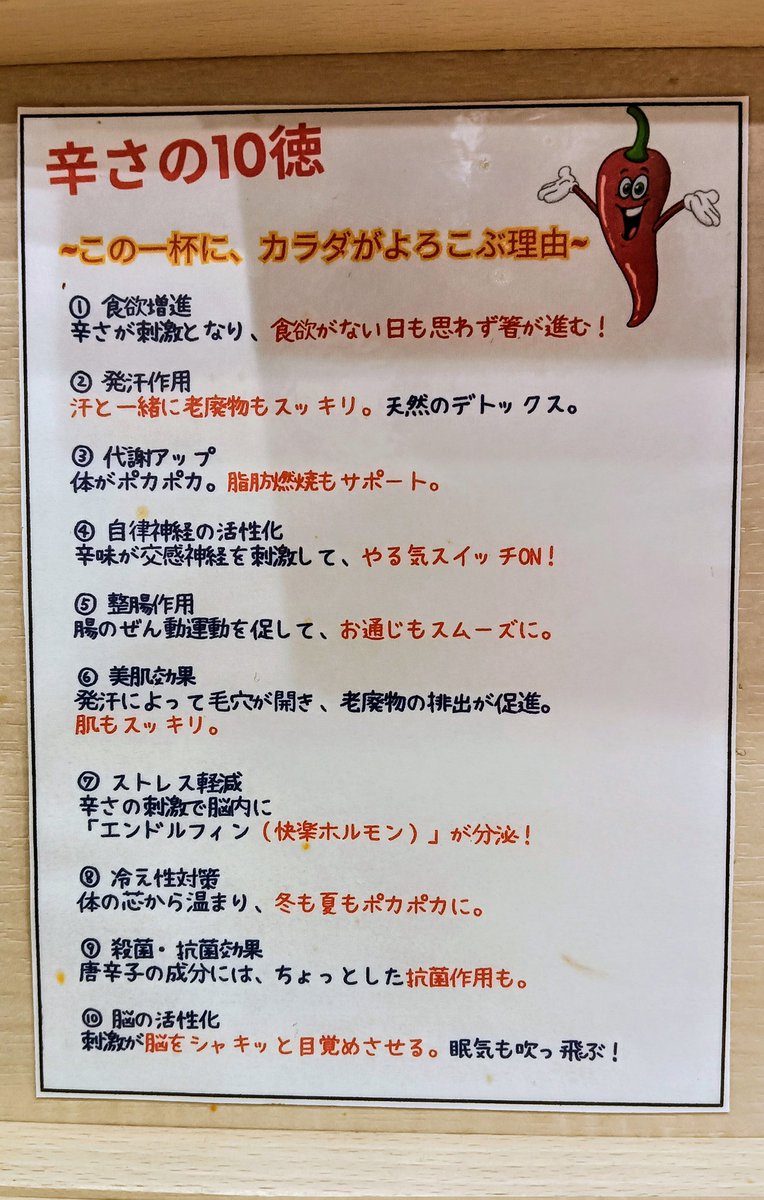 辛さの10徳
~この一杯に、カラダがよろこぶ理由~
① 食欲増進
辛さが刺激となり、食欲がない日も思わず箸が進む！
② 発汗作用
汗と一緒に老廃物もスッキリ。天然のデトックス。
③ 代謝アップ
体がポカポカ。脂肪燃焼もサポート。
④ 自律神経の活性化
辛味が交感神経を刺激して、やる気スイッチON！
⑤ 整腸作用
腸のぜん動運動を促して、お通じもスムーズに。
⑥ 美肌効果
発汗によって毛穴が開き、老廃物の排出が促進。
肌もスッキリ。
⑦ ストレス軽減
辛さの刺激で脳内に
「エンドルフィン（快楽ホルモン）」が分泌！
⑧ 冷え性対策
体の芯から温まり、冬も夏もポカポカに。
⑨ 殺菌・抗菌効果
唐辛子の成分には、ちょっとした抗菌作用も。
⑩ 脳の活性化
刺激が脳をシャキッと目覚めさせる。眠気も吹っ飛ぶ！